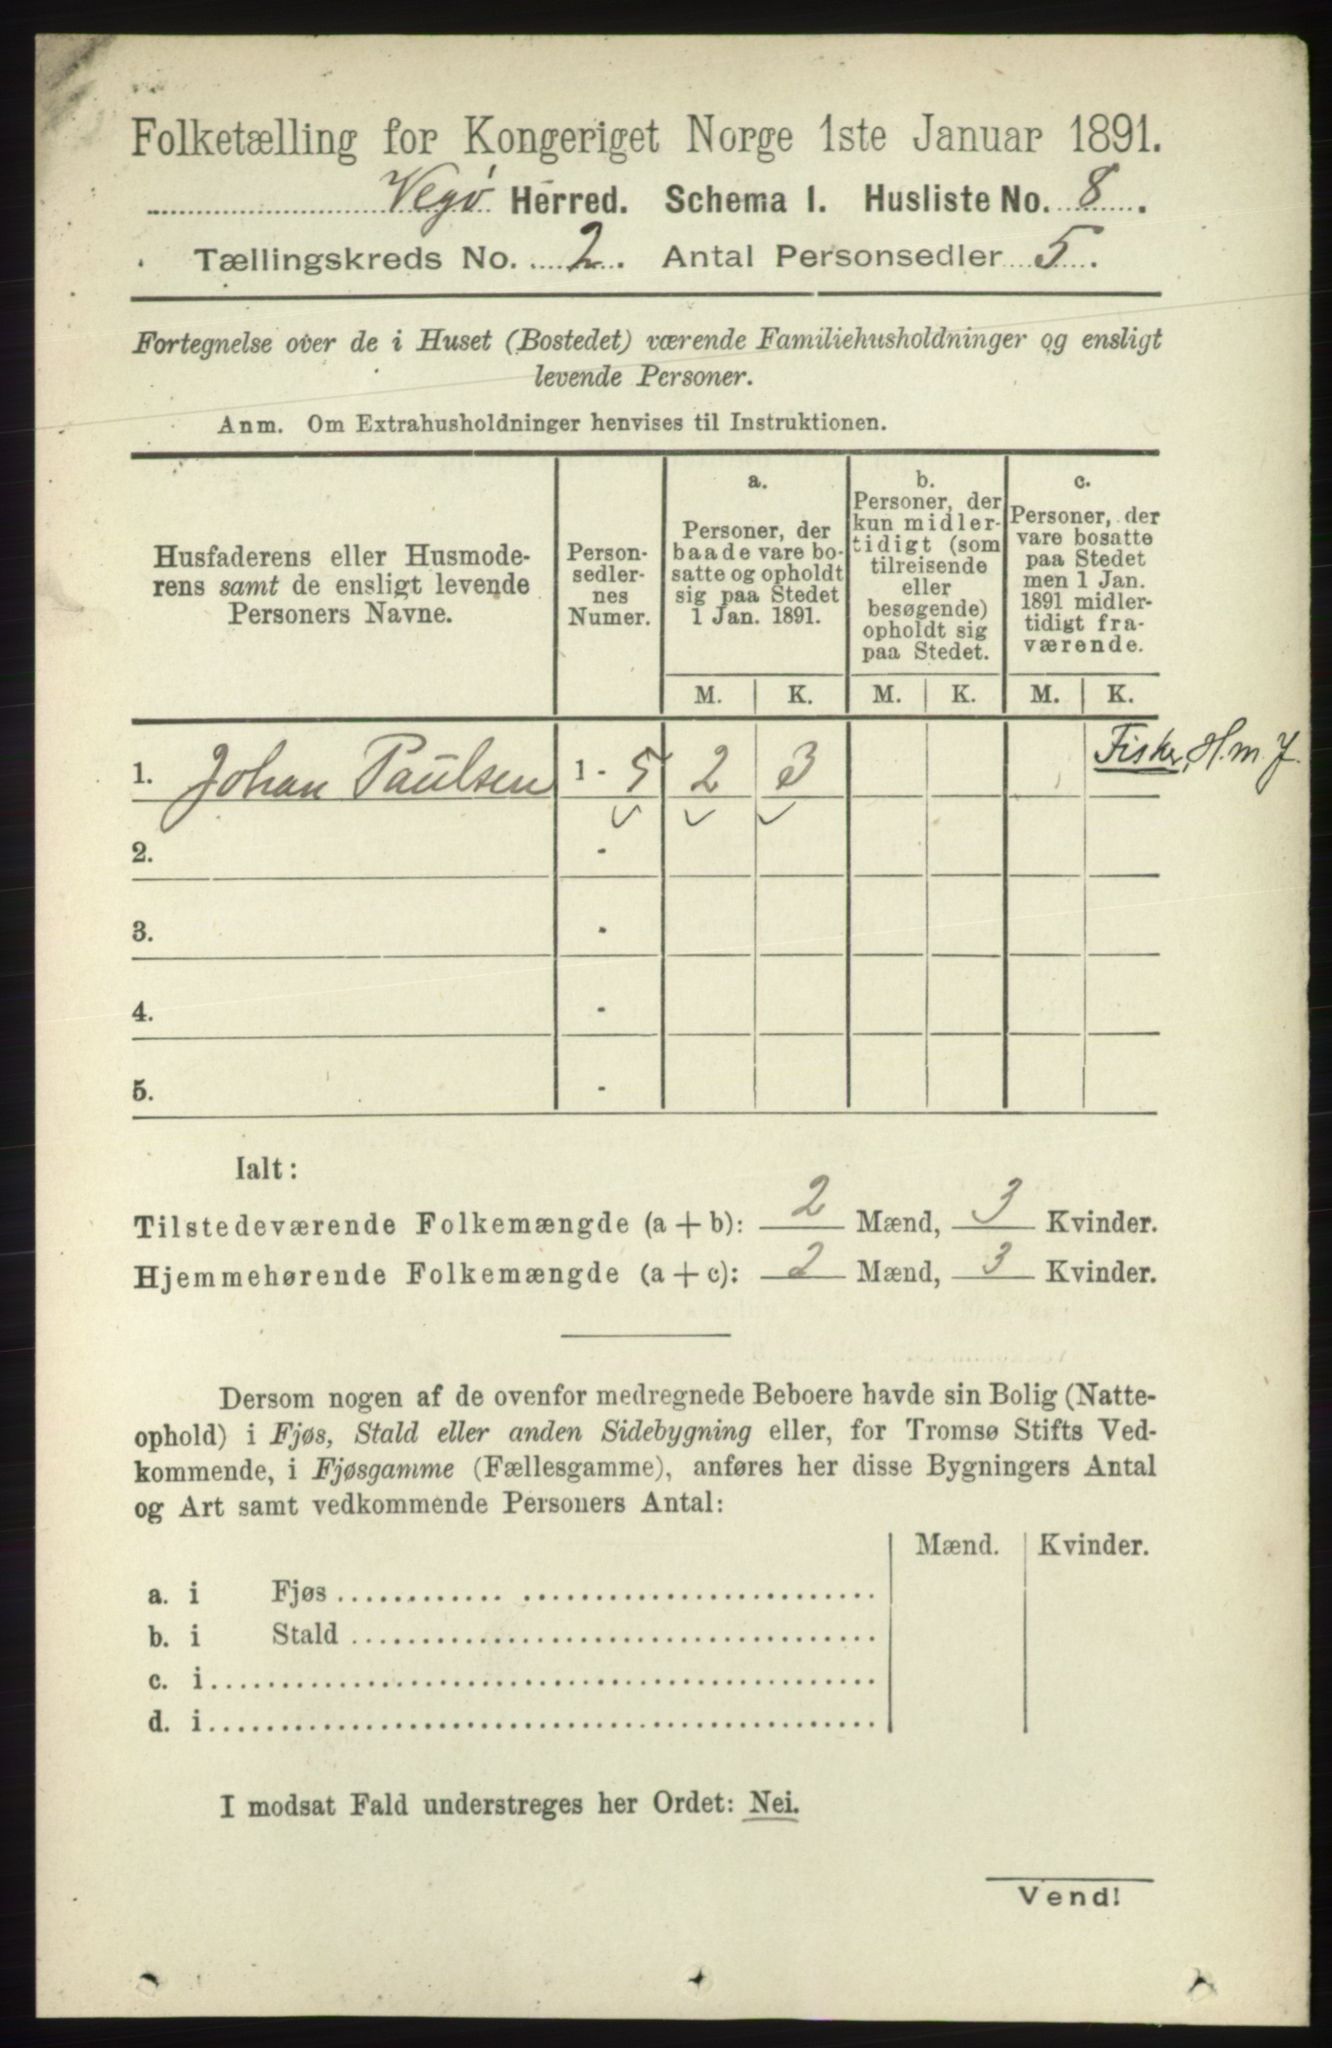 Folketælling for Kongeriget Norge 1ste Januar 1891.
Vegø Herred. Schema I. Husliste No. 8.
Tællingskreds No. 2. Antal Personsedler 5.
Fortegnelse over de i Huset (Bostedet) værende Familiehusholdninger og ensligt
levende Personer.
Anm. Om Extrahusholdninger henvises til Instruktionen.
Husfaderens eller Husmode-
rens samt de ensligt levende
Personers Navne.
Person-
sedler-
nes
Numer.
a.
Personer, der
baade vare bo-
satte og opholdt
sig paa Stedet
1 Jan. 1891.
b.
Personer, der
kun midler-
tidigt (som
tilreisende
eller
besøgende)
opholdt sig
paa Stedet.
c.
Personer, der
vare bosatte
paa Stedet
men 1 Jan.
1891 midler-
tidigt fra-
værende.
M. K. M. K. M. K.
1. Johan Paulsen 1 - 5 2 3 Fisker, H. m. J.
2. -
3. -
4. -
5. -
Ialt:
Tilstedeværende Folkemængde (a + b): 2 Mænd, 3 Kvinder.
Hjemmehørende Folkemængde (a + c): 2 Mænd, 3 Kvinder.
Dersom nogen af de ovenfor medregnede Beboere havde sin Bolig (Natte-
ophold) i Fjøs, Stald eller anden Sidebygning eller, for Tromsø Stifts Ved-
kommende, i Fjøsgamme (Fællesgamme), anføres her disse Bygningers Antal
og Art samt vedkommende Personers Antal:
Mænd. Kvinder.
a. i Fjøs
b. i Stald
c. i
d. i
I modsat Fald understreges her Ordet: Nei.
Vend!